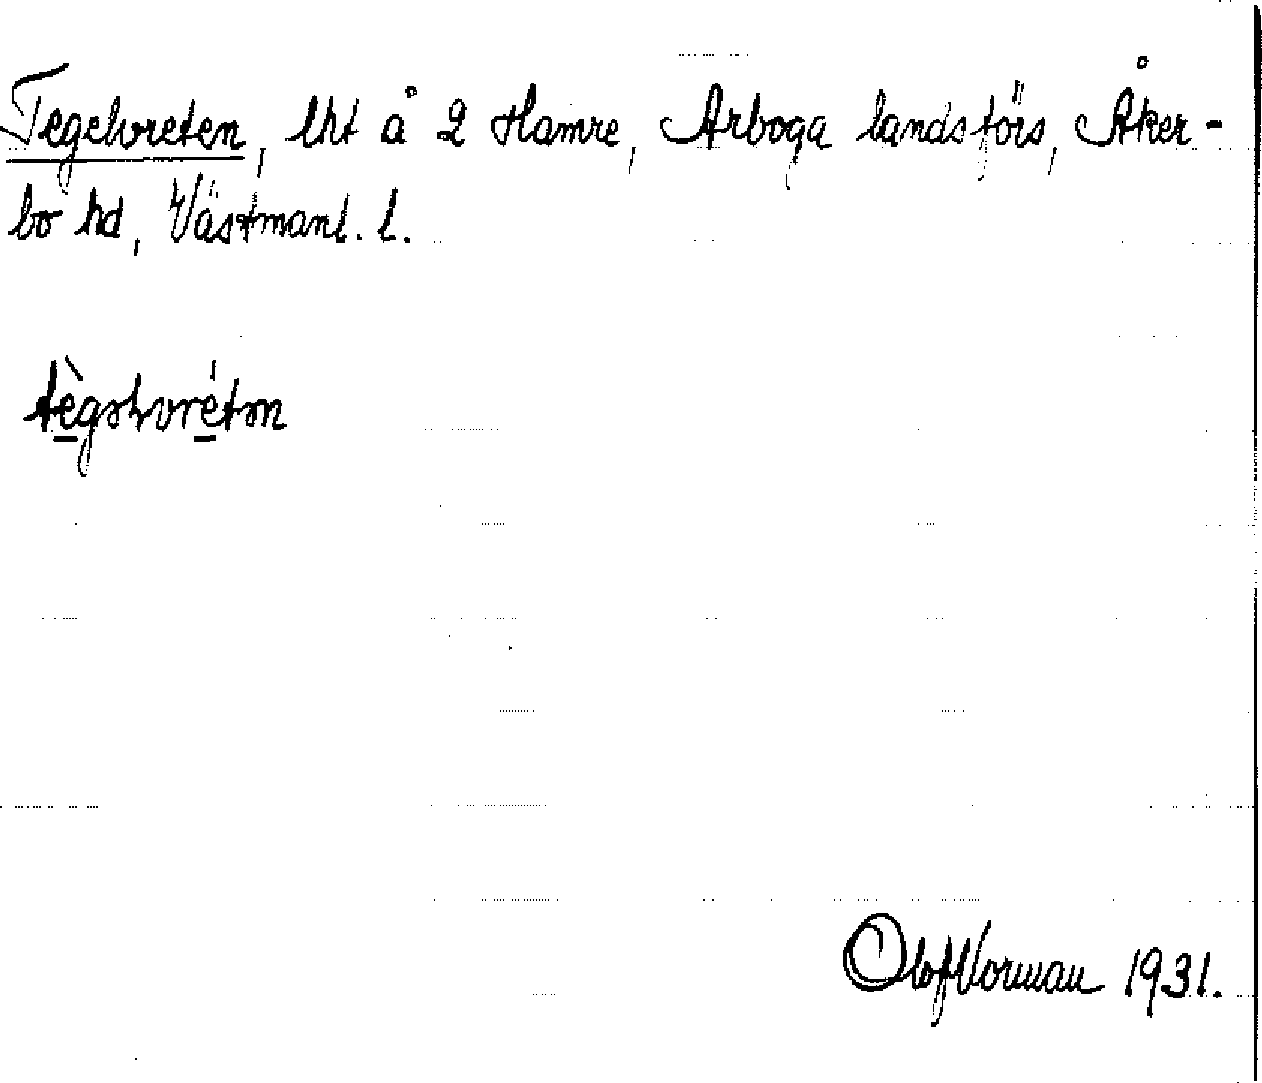 Tegelvreten, lht å 2 Hamre, Arboga landsförs, Åker-
bo hd, Västmanl. l.
tègəlvrétən
Olof Norman 1931.